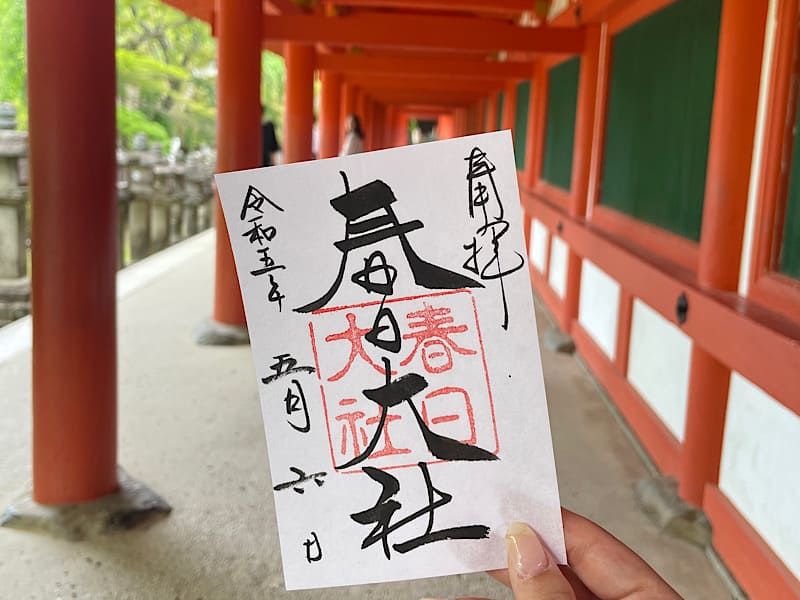 奉拝
春日大社
春日
大社
令和五年
五月六日